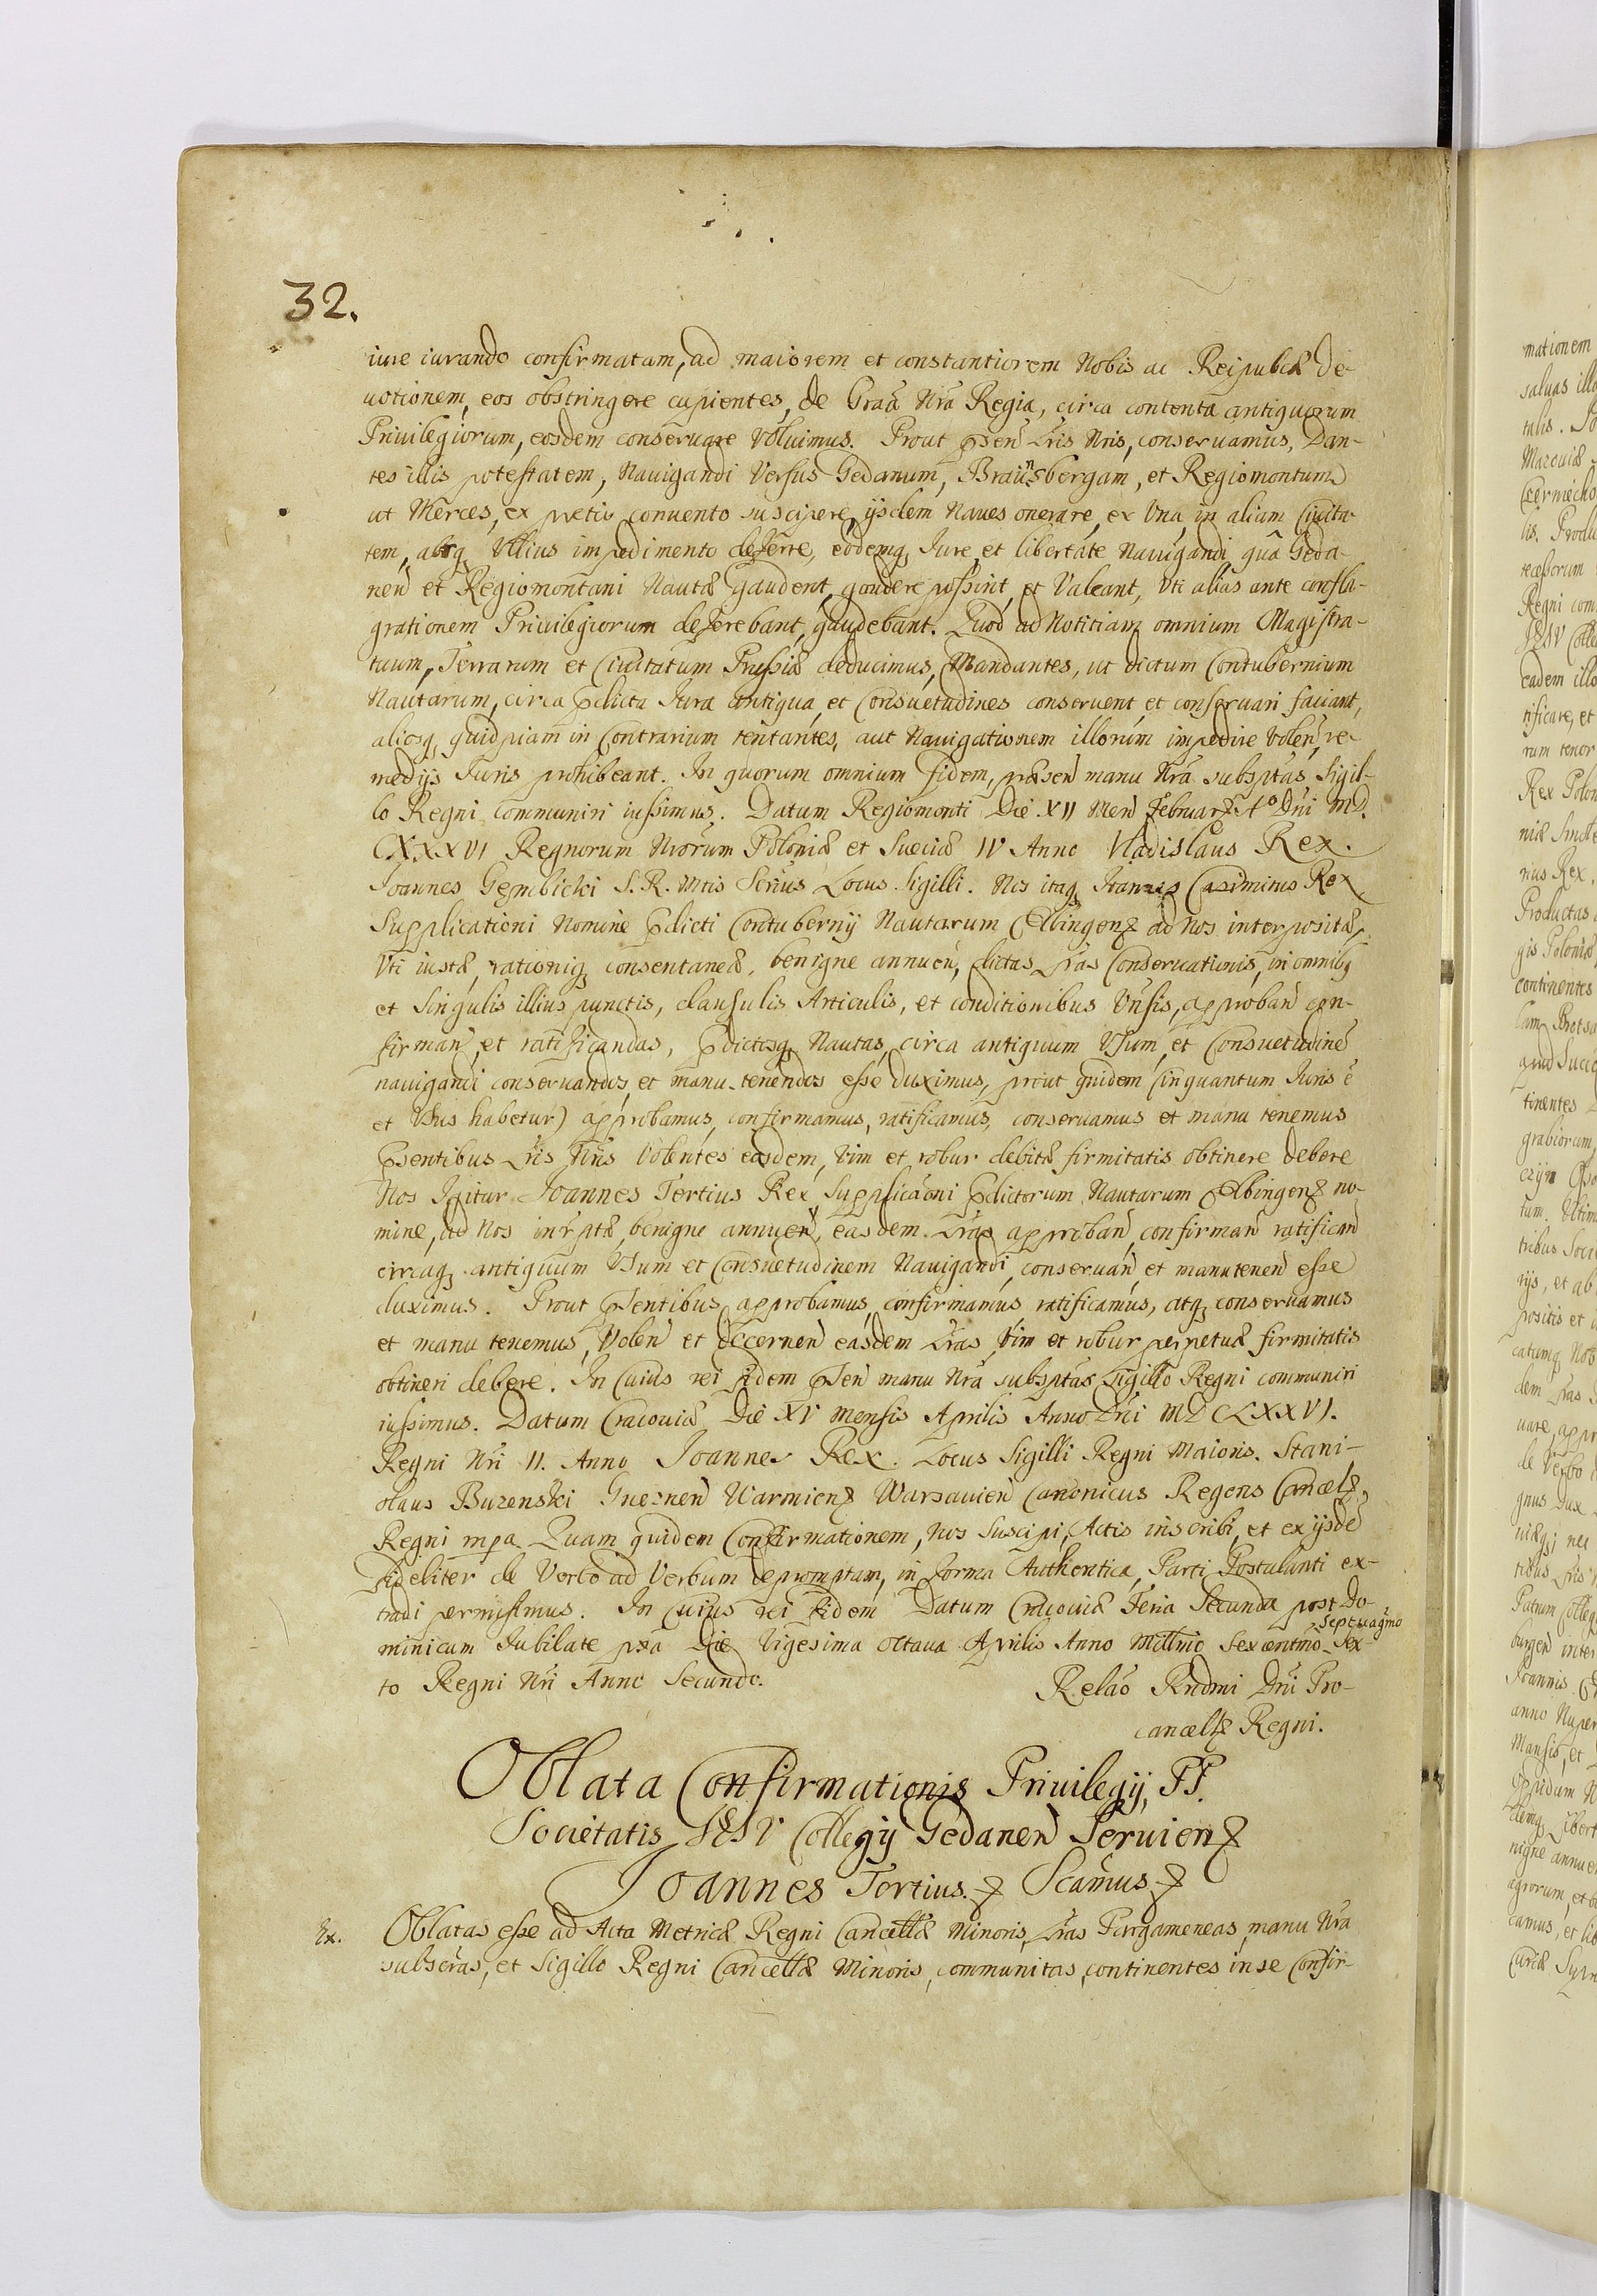 32.
iure iurando confirmatam, ad maiorem et constantiorem Nobis ac Reipubcæ de-
uotionem, eos obstringere cupientes, de Graã Nrã Regia, circa contenta antiquorum
Priuilegiorum, eosdem conseruare Voluimus. Prout pñsen Lris Nris, conseruamus, Dan-
tes illis potestatem, Nauigandi Versus Gedanum, Braunsbergam, et Regiomontum
ut Merces, ex pretio conuento suscipere, ijsdem Naues onerare, ex Vna, in aliam Ciuita-
tem, absq Vllius impedimento deferre, eodemq Iure, et libertate Nauigandi, quâ Geda-
nen et Regiomontani Nautæ Gaudent, gaudere possint, et Valeant, Vti alias ante confla-
grationem Priuilegiorum deferebant, gaudebant. Quod ad Notitiam omnium Magistra-
tuum, Terrarum et Ciuitatum Prussiæ deducimus, Mandantes, ut dictum Contubernium
Nautarum, circa pdicta Iura antiqua, et Consuetudines conseruent et conseruari faciant,
aliosq quidpiam in Contrarium tentantes, aut Nauigationem illorum impedire Volen, re-
medijs Iuris prohibeant. In quorum omnium fidem, præsen manu Nrã subsptas, Sigil-
lo Regni communiri iussimus. Datum Regiomonti Die XII Men Februar Ao Dni MD.
CXXXVI Regnorum Nrorum Poloniæ et Sueciæ IV Anno Vladislaus Rex.
Joannes Gembicki S. R. Mtis Scrius Locus Sigilli. Nos itaq Ioannes Casimirus Rex
Supplicationi Nomine pdicti Contubernij Nautarum Elbingen ad Nos interpositæ,
Vti iustæ, rationiq consentaneæ, benigne annuen, dictas Lras Conseruationis, in omnibq
et Singulis illius punctis, clausulis Articulis, et conditionibus Vnsis, approban con-
firman, et ratificandas, pdictosq Nautas, circa antiquum Vsum, et Consuetudinẽ
nauigandi conseruandos et manu-tenendos esse duximus, prout quidem (inquantum Iuris ẽ
et Vsus habetur) approbamus, confirmamus, ratificamus, conseruamus et manu tenemus
psentibus Lris Nris Volentes easdem, Vim et robur debitæ firmitatis obtinere debere
Nos Igitur Joannes Tertius Rex, Supplicãoni pdictorum Nautarum Elbingen no-
mine, ad Nos intrptæ, benigne annuen, easdem Lras approban, confirman ratifican
circaq antiquum Vsum et Consuetudinem Nauigandi, conseruan, et manutenen esse
duximus. Prout psentibus approbamus, confirmamus ratificamus, atq conseruamus
et manu tenemus, Volen et decernen easdem Lras, Vim et robur perpetuæ firmitatis
obtineri debere. In Cuius rei fidem psen manu Nrã subsptas, Sigillo Regni communiri
iussimus. Datum Cracouiæ Die XV Mensis Aprilis Anno Dni MDCLXXVI.
Regni Nri II. Anno Joannes Rex. Locus Sigilli Regni Maioris. Stani-
slaus Buzenski Gnesnen Warmien Warsauien Canonicus Regens Cancel
Regni mpa Quam quidem Confirmationem, Nos Suscipi, Actis inscribi, et ex ijsdẽ
fideliter de Verbo ad Verbum depromptam, in forma Authentica, Parti Postulanti ex-
tradi permisimus. In Cuius rei fidem Datum Cracouiæ Feria Secunda post Do-
minicam Iubilate pxa Die Vigesima octaua Aprilis Anno Millmo Sexcentmo septuagmo Sex-
to Regni Nri Anno Secundo.
Relão Rndmi Dni Pro-
cancel Regni.
Oblata Confirmationis Priuilegij, PP.
Societatis IESV Collegij Gedanen Seruien
Joannes Tertius. Scãmus
Ex. Oblatas esse ad Acta Metricæ Regni Cancellæ Minoris, Lras Pargameneas, manu Nra
subscras, et Sigillo Regni Cancellæ Minoris, communitas, continentes in se Confir-